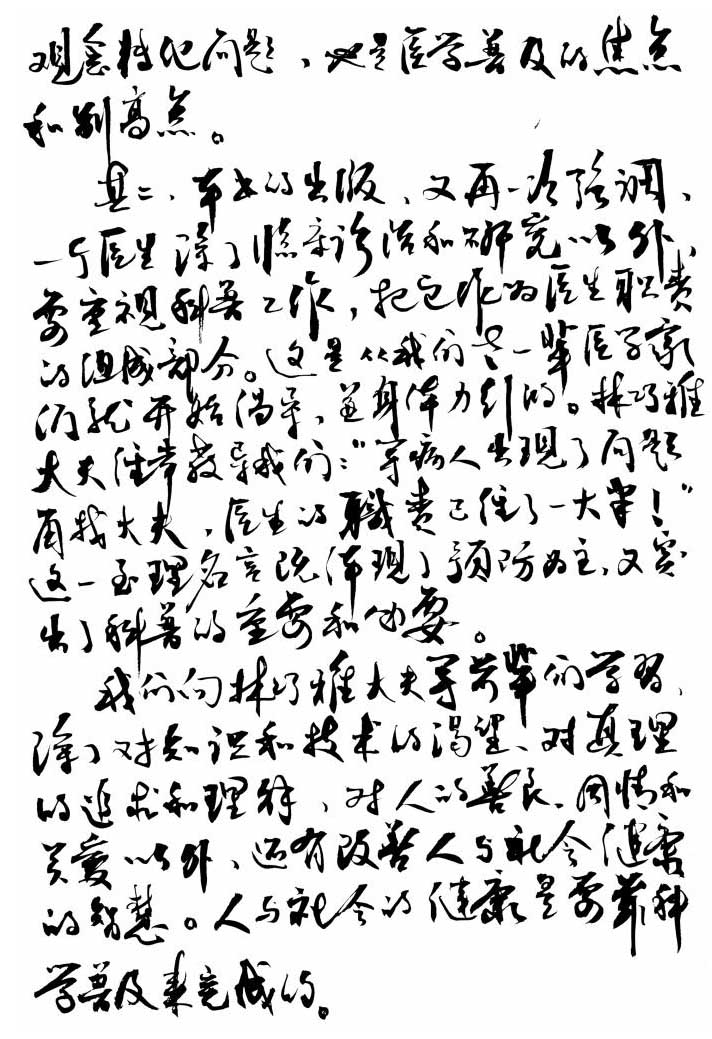 观念转化问题，也是医学普及的焦点
和制高点。
其二、本书的出版、又再一次强调、
一个医生除了临床诊治和研究以外，
要重视科普工作，把它作为医生职责
的组成部分。这是从我们老一辈医学家
们就开始倡导、并身体力行的。林巧稚
大夫经常教导我们：“等病人出现了问题
再找大夫，医生的職责已经丢了一大半！”
这一至理名言既体现了预防为主，又突
出了科普的重要和必要。
我们向林巧稚大夫等前辈们学习、
除了对知识和技术的渴望、对真理
的追求和理解、对人的善良、同情和
关爱以外、还有改善人与社会健康
的智慧。人与社会的健康是要靠科
学普及来完成的。